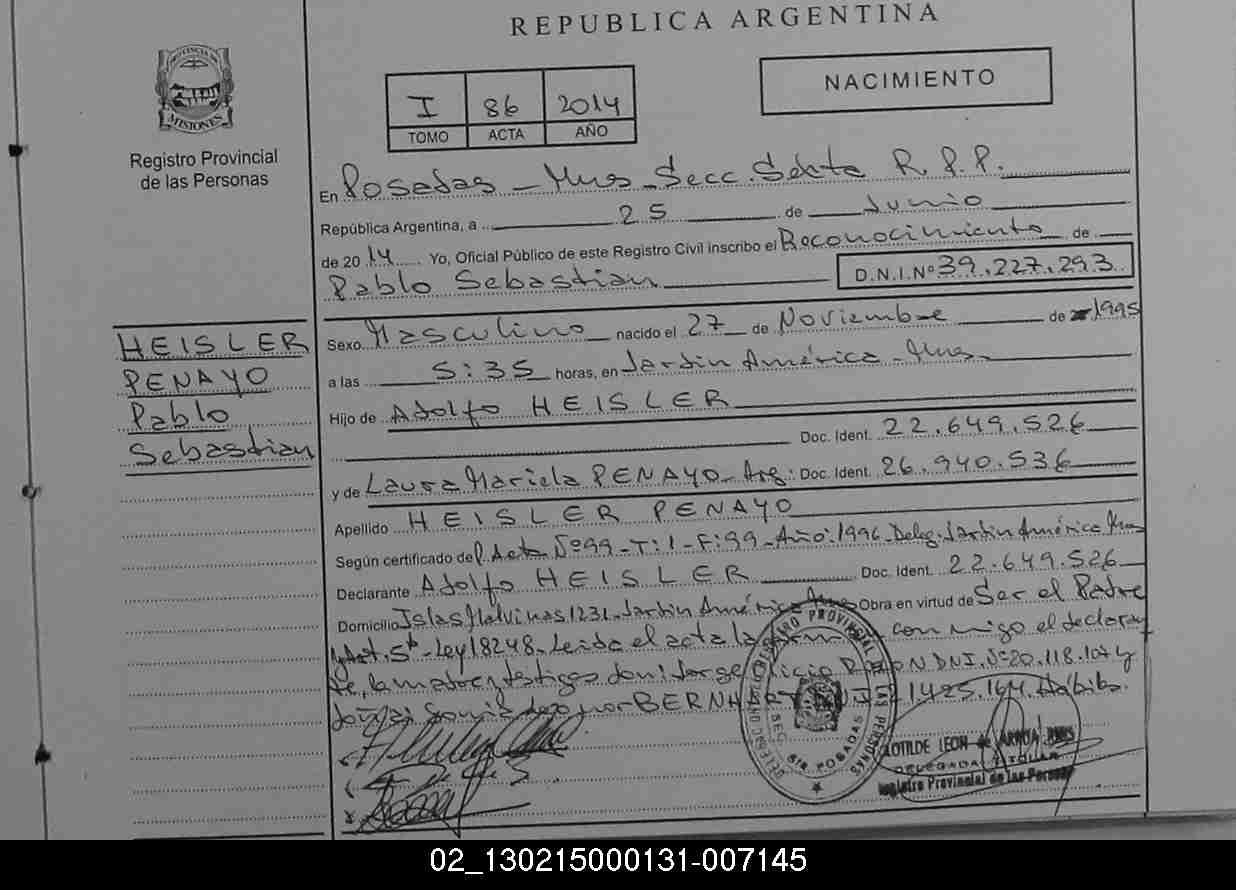 REPUBLICA ARGENTINA
PROVINCIA DE
MISIONES
Registro Provincial
de las Personas
NACIMIENTO
I 86 2014
TOMO ACTA AÑO
En Posadas - Mnes - Secc. Sexta R.P.P.
República Argentina, a 25 de Junio
de 2014 Yo, Oficial Público de este Registro Civil inscribo el Reconocimiento de
Pablo Sebastian D.N.I.Nº 39.227.293
HEISLER
PENAYO
Pablo
Sebastian
Sexo Masculino nacido el 27 de Noviembre de 1995
a las 5:35 horas, en Jardin América - Mnes
Hijo de Adolfo HEISLER
Doc. Ident. 22.649.526
y de Laura Mariela PENAYO - Arg: Doc. Ident. 26.940.536
Apellido HEISLER PENAYO
Según certificado de Acta Nº99 - T:1 - F:99 - Año:1996 - Deleg. Jardin América Mnes
Declarante Adolfo HEISLER Doc. Ident. 22.649.526
Domicilio Islas Malvinas 1231 - Jardin América Mnes Obra en virtud de Ser el Padre
y Art. 5º - Ley 18248 - Leida el acta la con migo el declaran
te, la madre y testigos don: Jorge DNI. Nº 20.118.107 y
BERNHARDT
REGISTRO PROVINCIAL DE LAS PERSONAS
SEC. 6ta. POSADAS
CLOTILDE LEON de
DELEGADA TITULAR
Registro Provincial de las Personas
02_130215000131-007145